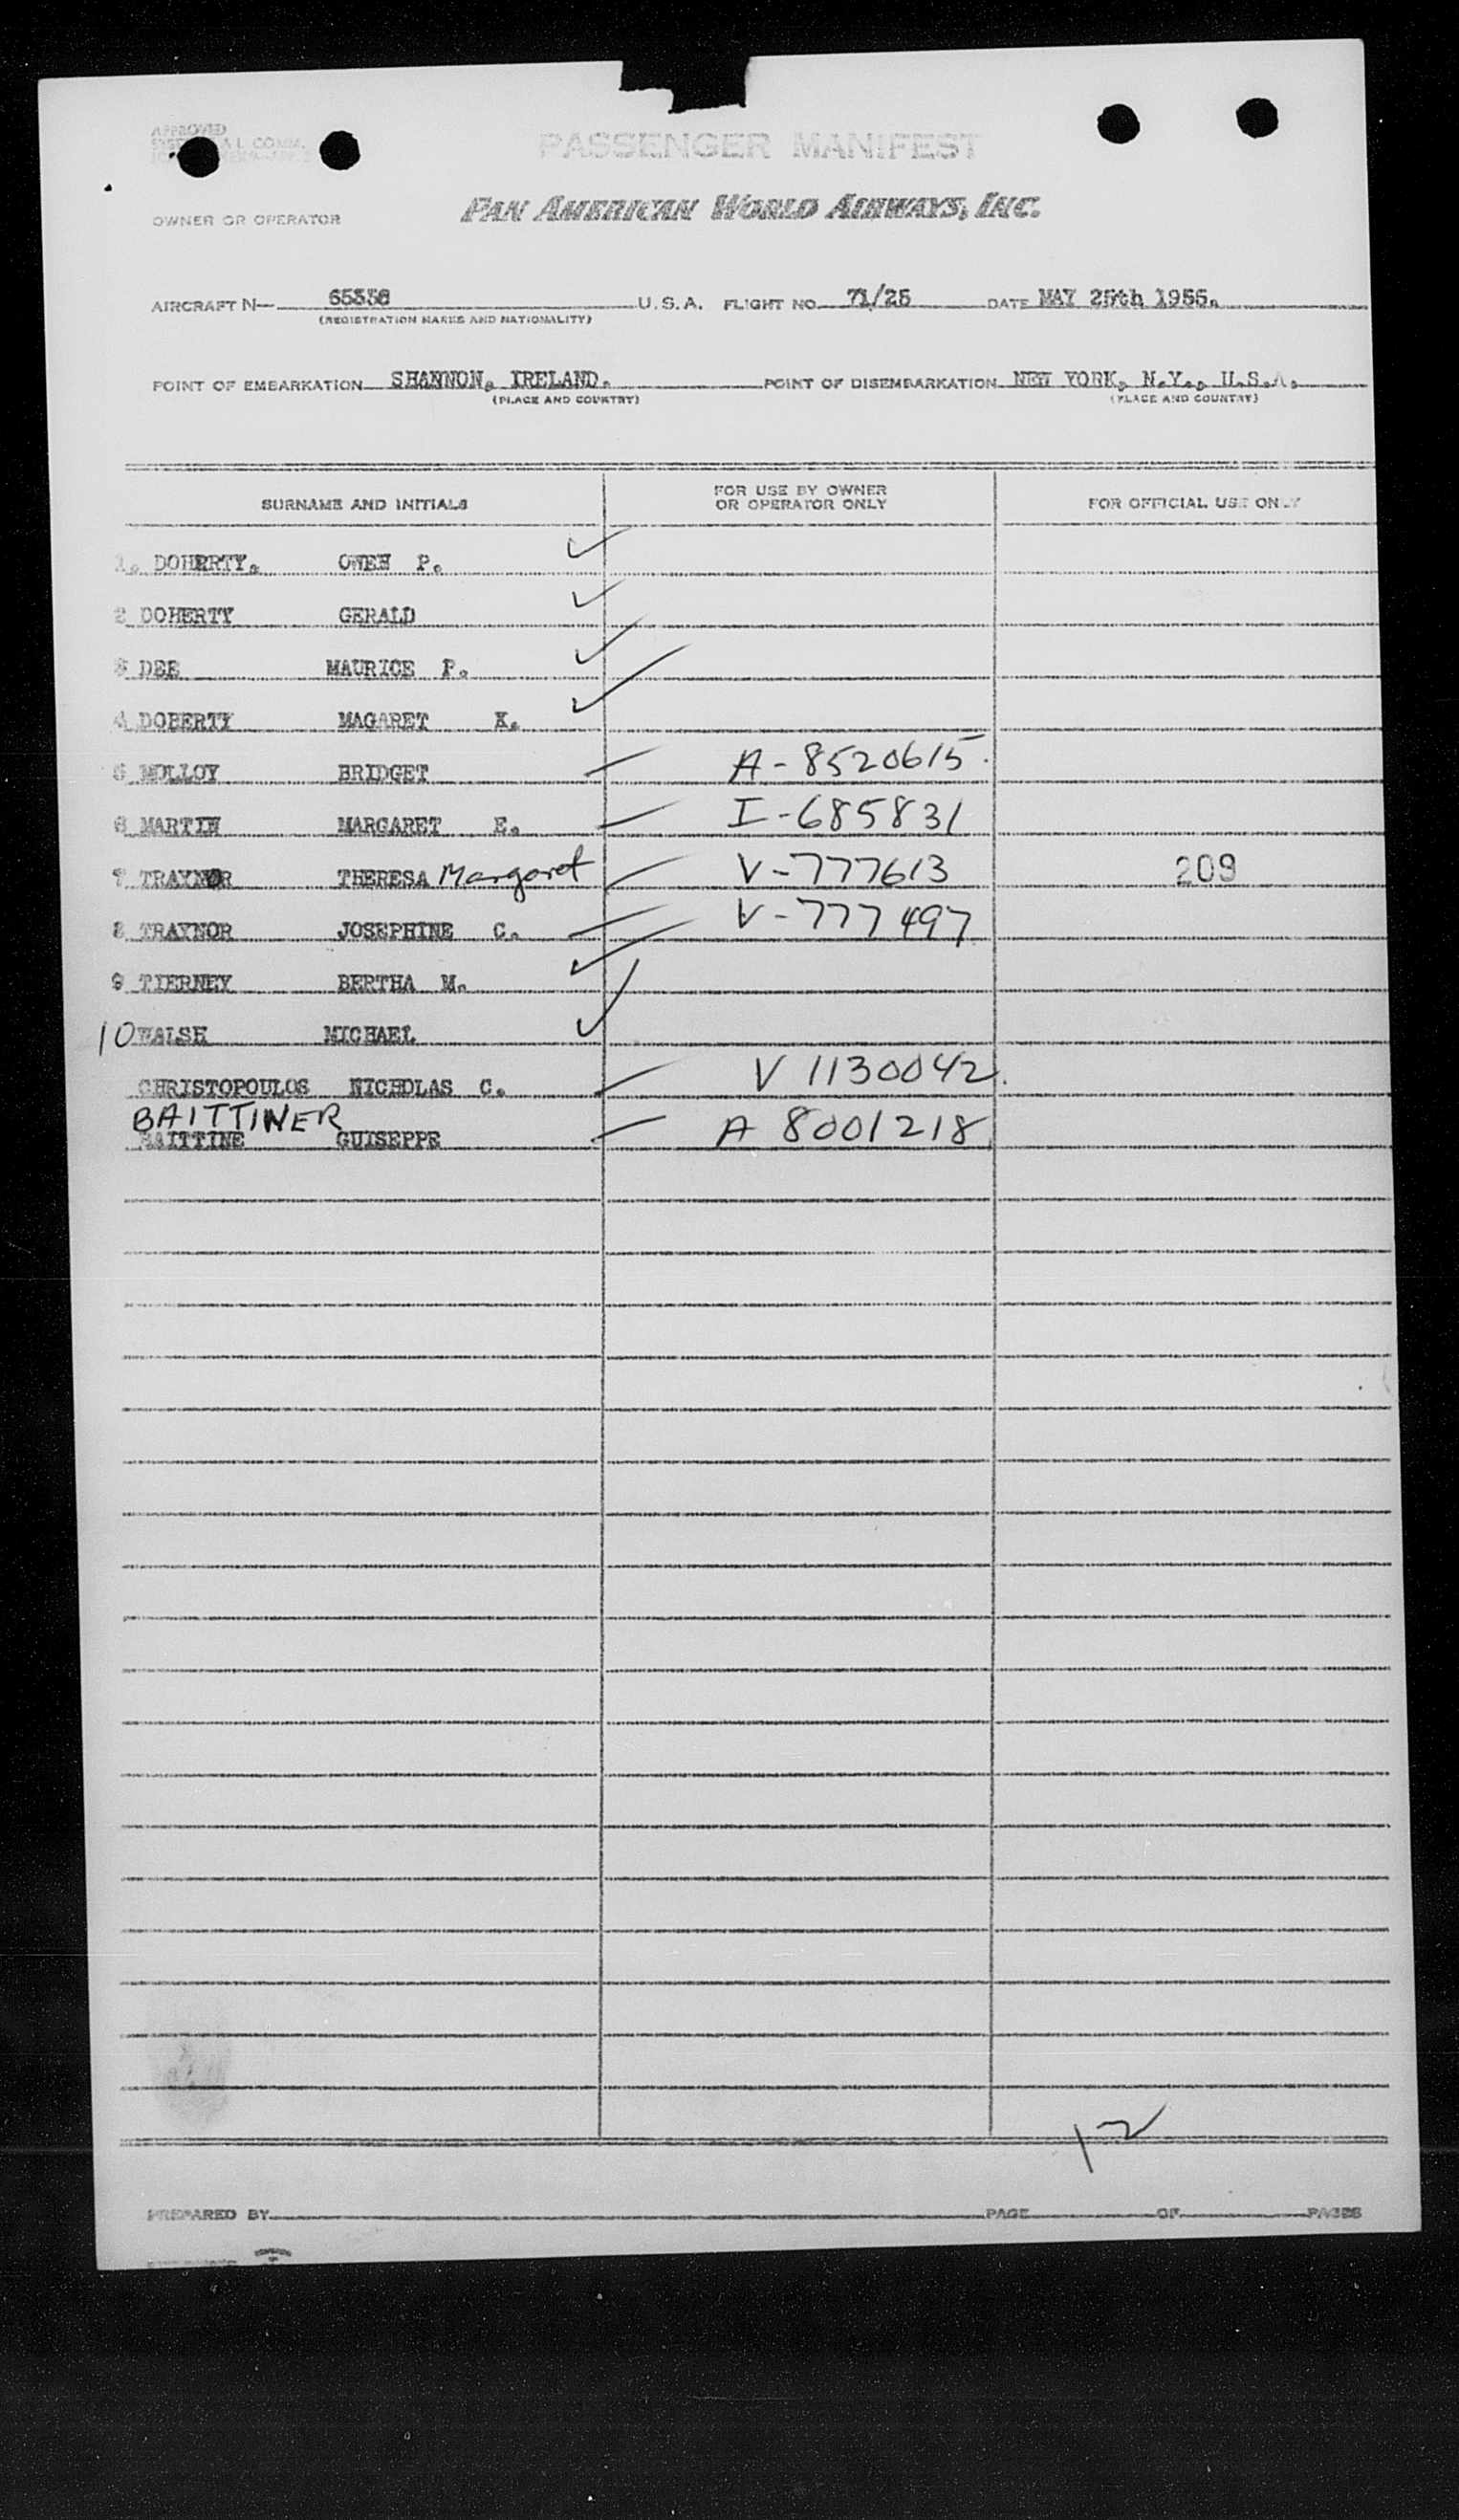 APPROVED
PASSENGER MANIFEST
OWNER OR OPERATOR PAN AMERICAN WORLD AIRWAYS, INC.
AIRCRAFT N— U.S.A. FLIGHT NO. 71/25 DATE MAY 25th 1955.
(REGISTRATION MARKS AND NATIONALITY)
POINT OF EMBARKATION SHANNON, IRELAND. POINT OF DISEMBARKATION NEW YORK, N.Y., U.S.A.
(PLACE AND COUNTRY) (PLACE AND COUNTRY)
SURNAME AND INITIALS FOR USE BY OWNER OR OPERATOR ONLY FOR OFFICIAL USE ONLY
1. DOHERTY. OWEN P. ✓
2 DOHERTY GERALD ✓
3 DEE MAURICE P. ✓
4 DOHERTY MAGARET K. ✓
5 MOLLOY BRIDGET — A-8520615.
6 MARTIN MARGARET E. — I-685831
7 TRAYNOR THERESA Margaret — V-777613 209
8 TRAYNOR JOSEPHINE C. — V-777497
9 TIERNEY BERTHA M. ✓
10 WALSH MICHAEL ✓
CHRISTOPOULOS NICHOLAS C. — V 1130042.
BAITTINER
BAITTINE GUISEPPE — A 8001218
12
PREPARED BY PAGE OF PAGES